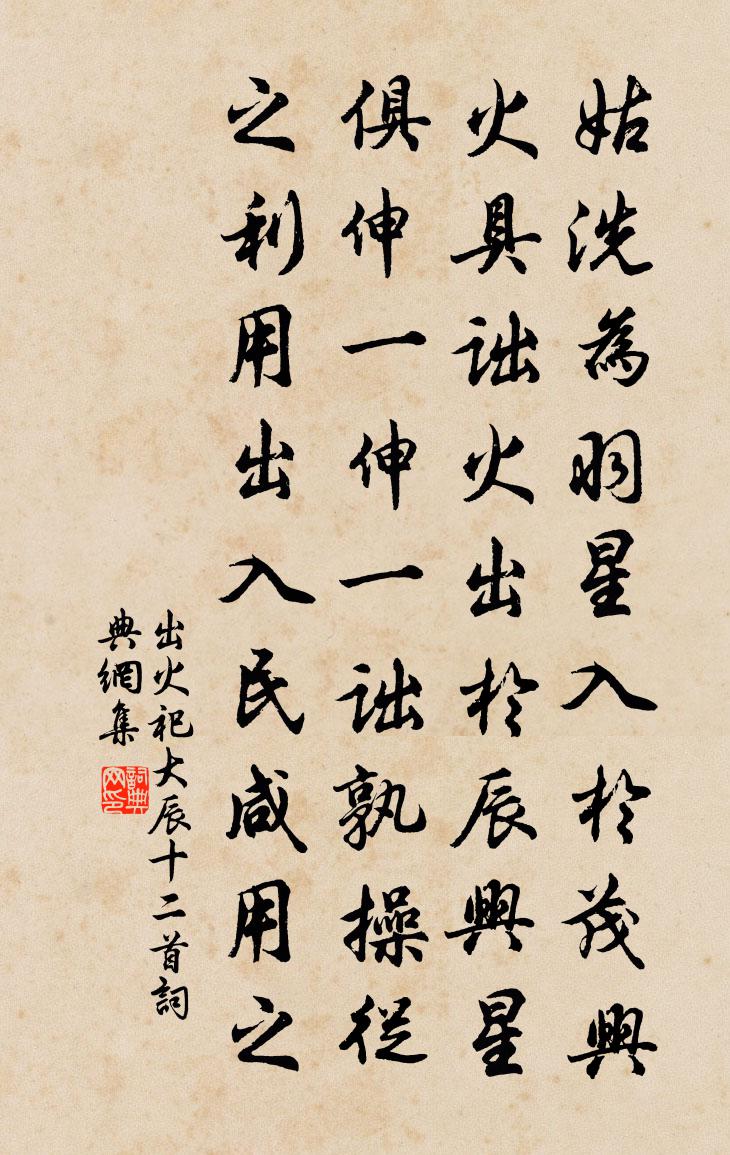 姑洗為羽星入於茂興
火具詘火出於辰興星
俱伸一伸一詘孰操從
之利用出入民咸用之
出火祀大辰十二首詞
典網集
詞典
网印